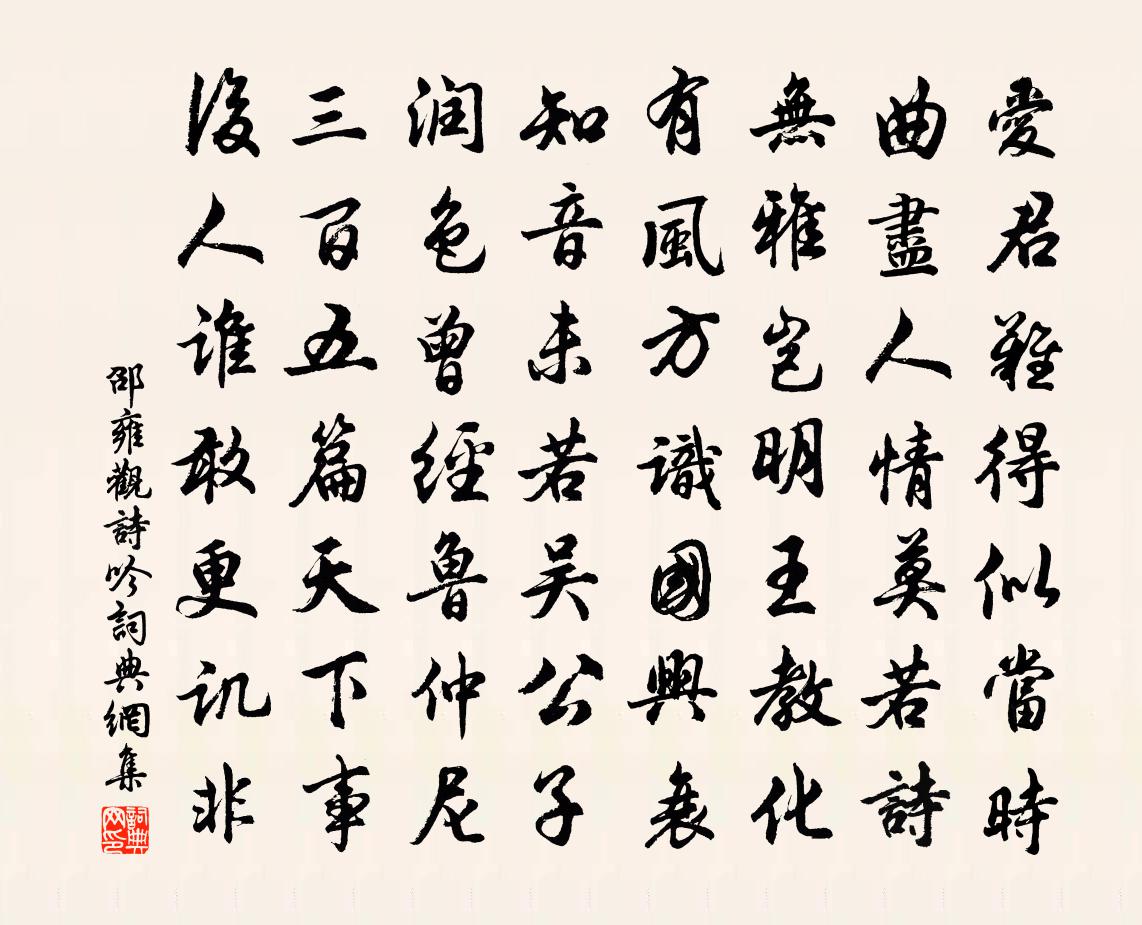 愛君難得似當時
曲盡人情莫若詩
無雅豈明王教化
有風方識國興衰
知音未若吴公子
润色曾經魯仲尼
三百五篇天下事
後人誰敢更讥非
邵雍觀詩吟詞典網集
詞典网印